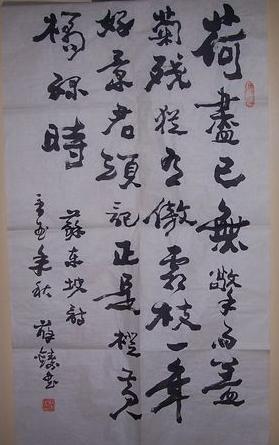 荷盡已無擎雨蓋
菊殘猶有傲霜枝一年
好景君須記正是橙黃
橘綠時
蘇東坡詩
年秋 書